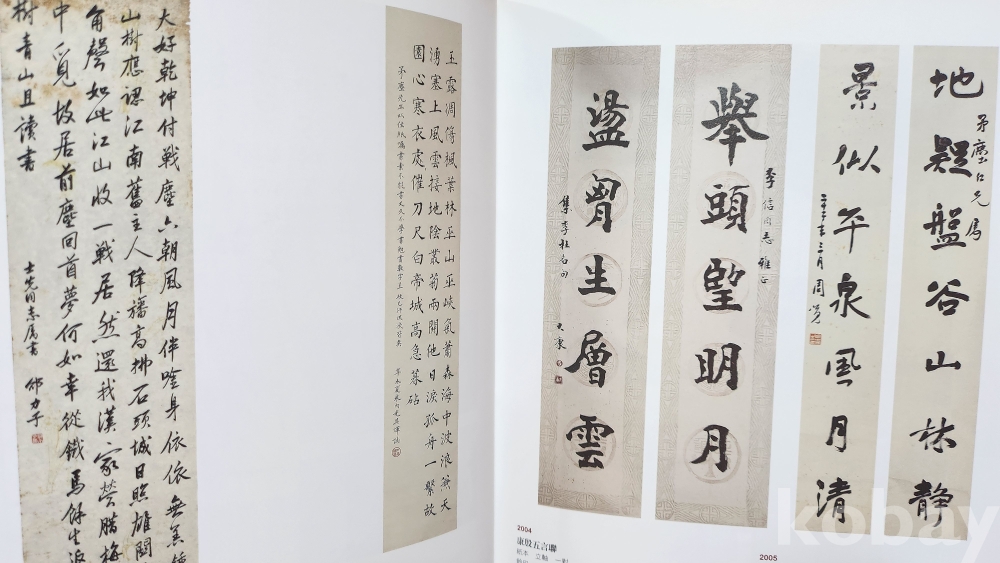 大好乾坤付戰塵六朝風月伴吟身依依無恙鍾
山樹應認江南舊主人降旛高拂石頭城日照雄關
角聲如此江山收一戰居然還我漢家營腊梅
中覓故居前塵回首夢何如幸從鐵馬餘生返
樹青山且讀書
士先同志屬書 邵力子
玉露凋傷楓葉林巫山巫峽氣蕭森海中波浪兼天
湧塞上風雲接地陰叢菊兩開他日淚孤舟一繫故
園心寒衣處處催刀尺白帝城高急暮砧
舉頭望明月
季信同志雅正
盪胸生層雲
集李杜名句
大康
地疑盤谷山林静
矛塵仁兄属
景似平泉風月清
三月周覺
2004
康殷五言聯
紙本 立軸 一對
2005
kobay